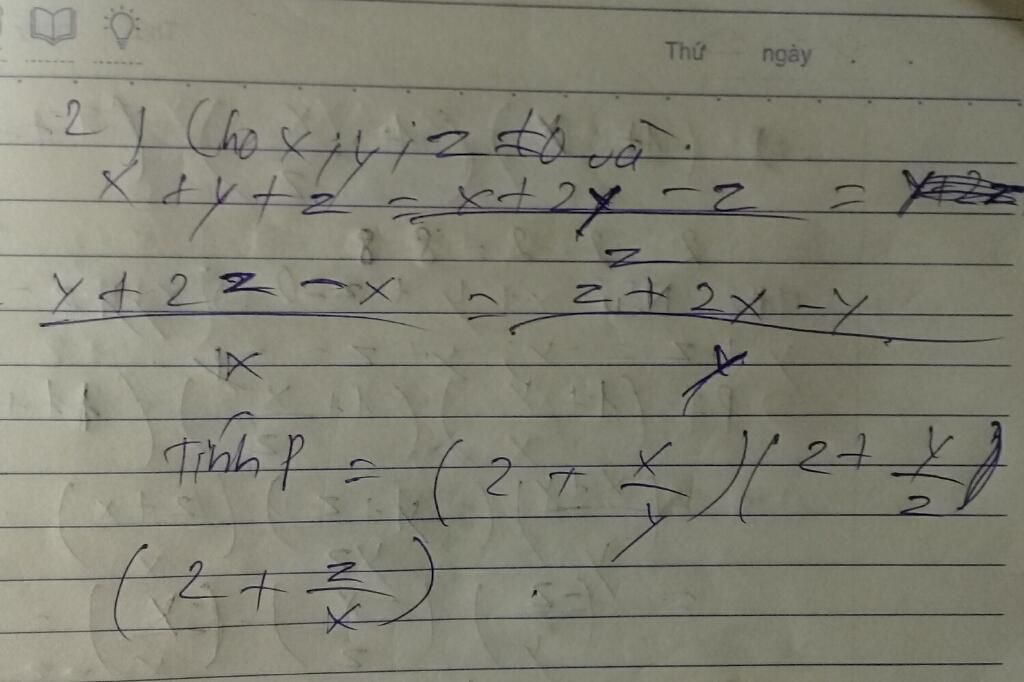 Thứ ngày
2) Cho x; y; z ≠ 0 và
x + y + z = \frac{x + 2y - z}{z} =
\frac{y + 2z - x}{x} = \frac{z + 2x - y}{y}
Tính P = (2 + \frac{x}{y})(2 + \frac{y}{z})
(2 + \frac{z}{x})